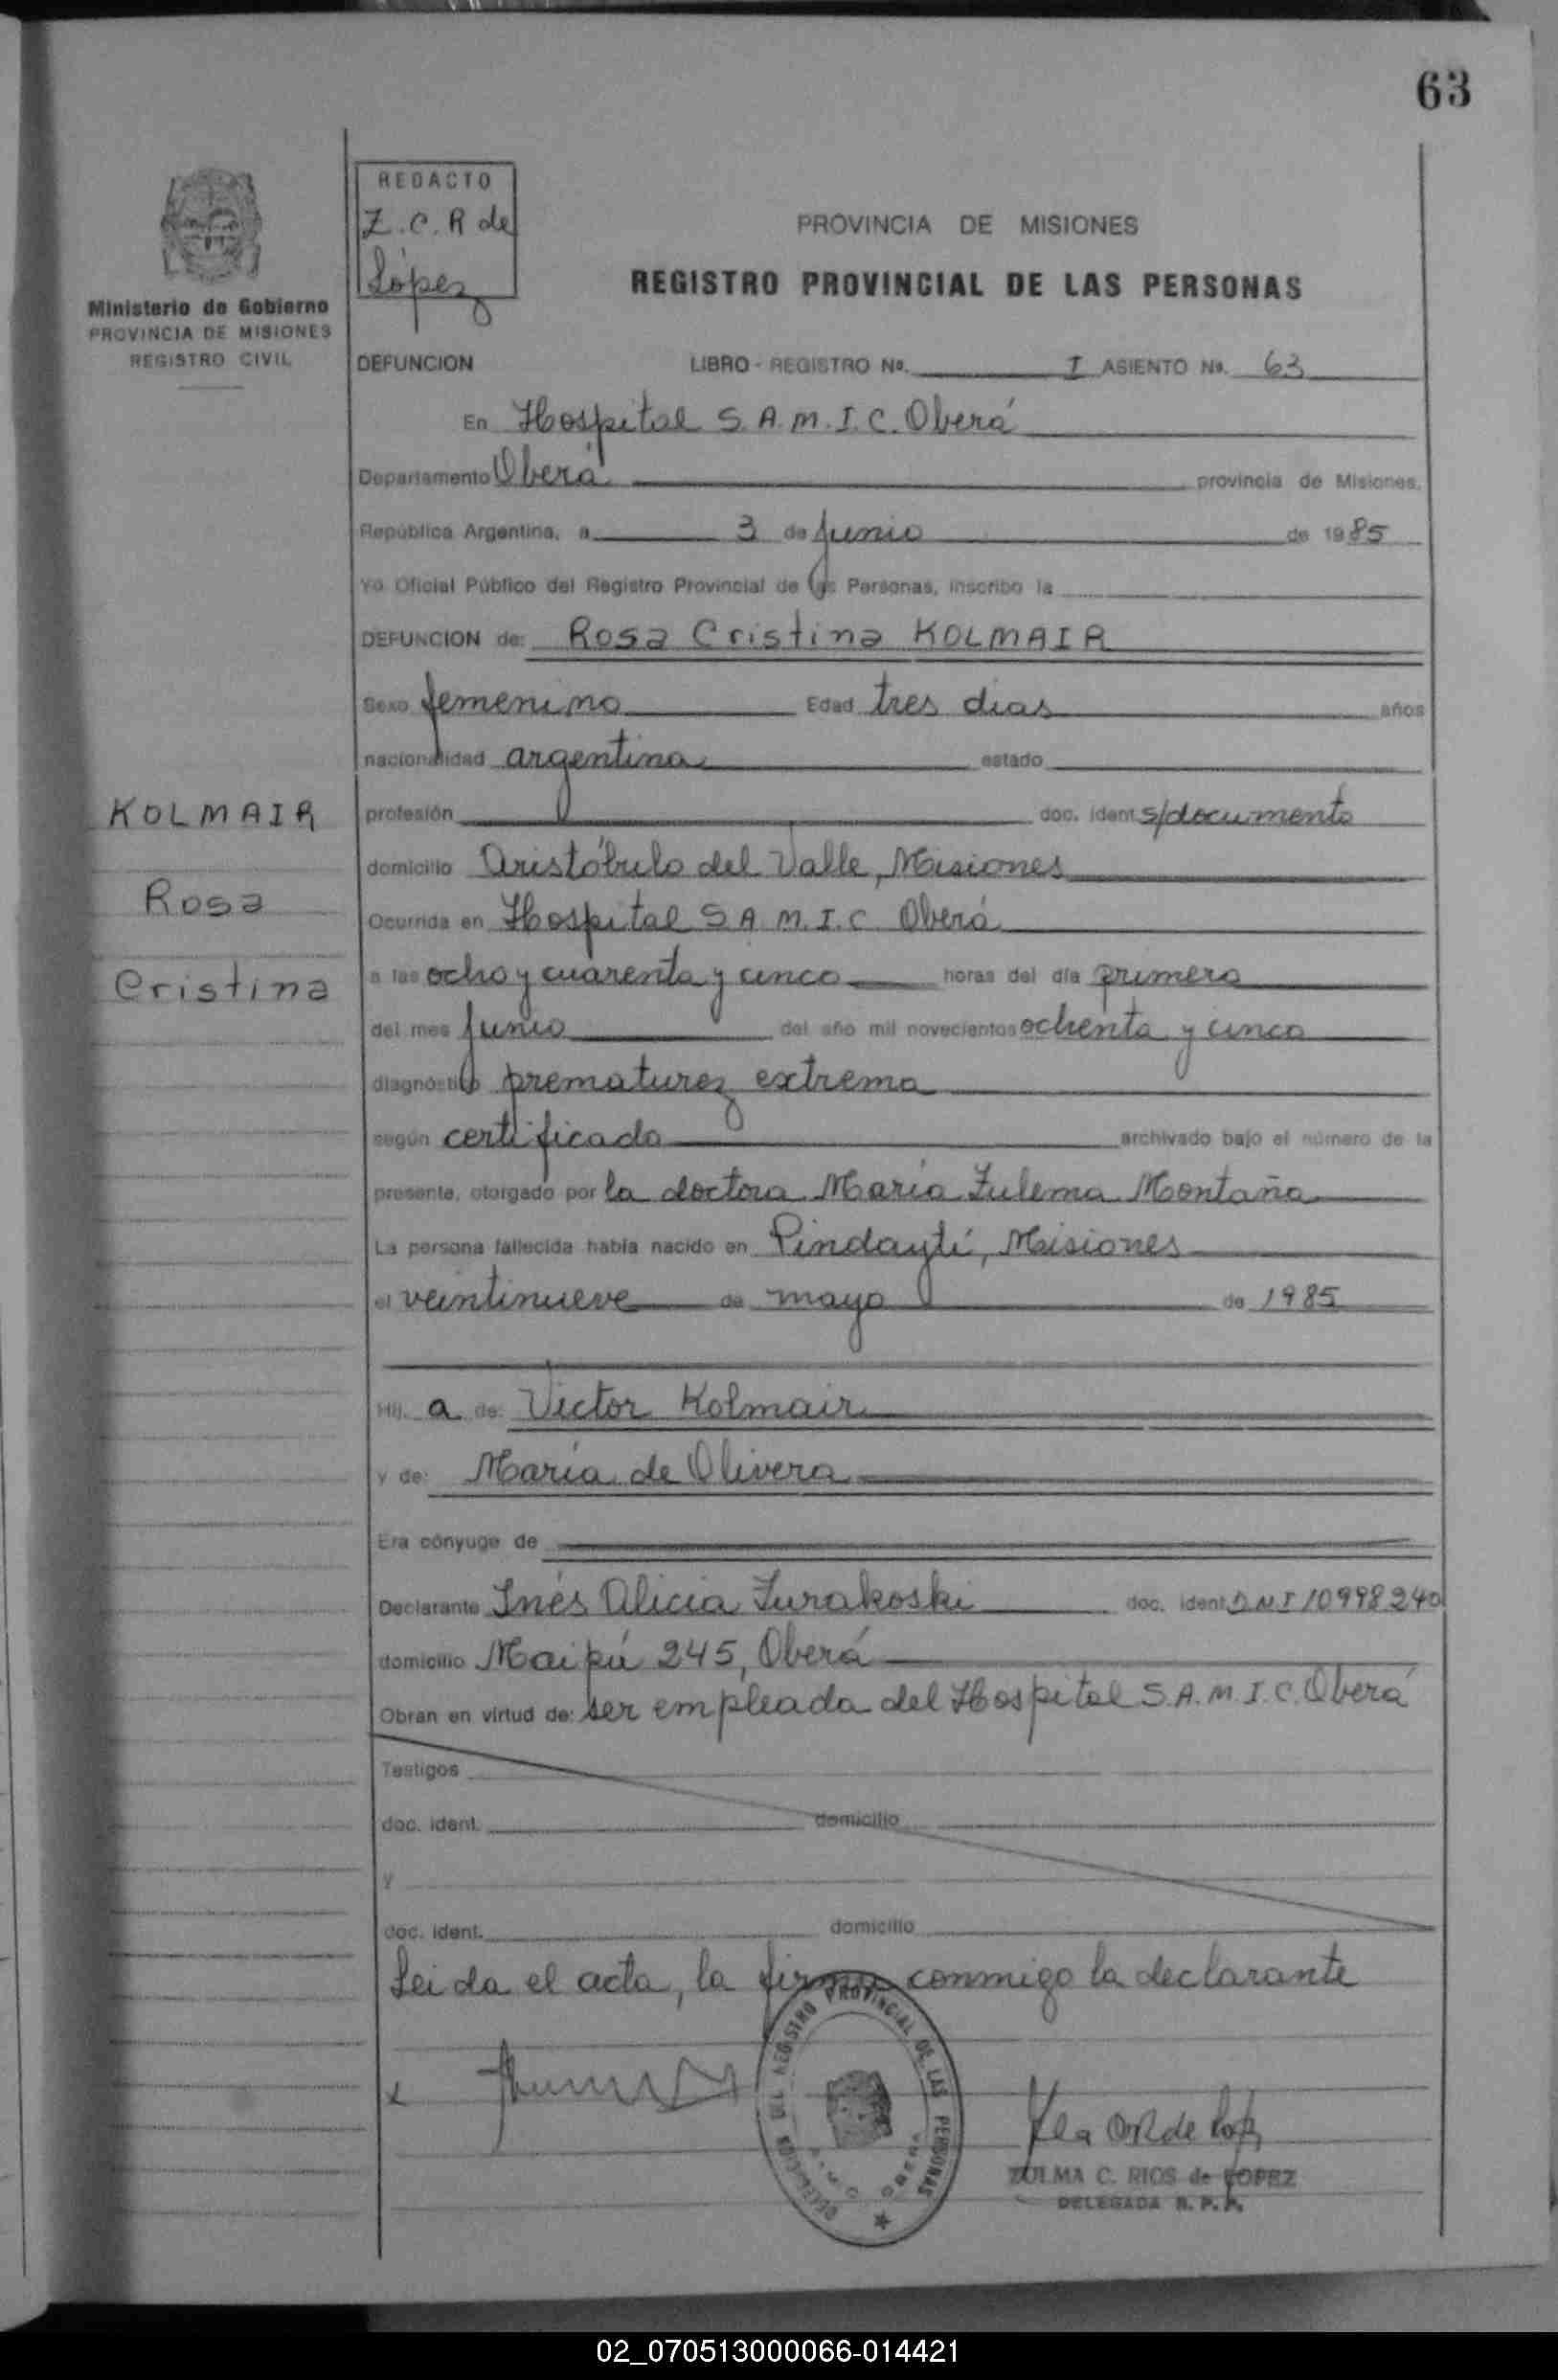 63
REDACTO
Z.C.R de
López
Ministerio de Gobierno
PROVINCIA DE MISIONES
REGISTRO CIVIL
PROVINCIA DE MISIONES
REGISTRO PROVINCIAL DE LAS PERSONAS
DEFUNCION LIBRO - REGISTRO No. I ASIENTO No. 63
En Hospital S.A.M.I.C. Oberá
Departamento Oberá provincia de Misiones,
República Argentina, a 3 de junio de 1985
Yo Oficial Público del Registro Provincial de las Personas, inscribo la
DEFUNCION de: Rosa Cristina KOLMAIR
Sexo femenino Edad tres dias años
nacionalidad argentina estado
KOLMAIR
Rosa
Cristina
profesión doc. ident. s/documento
domicilio Aristóbulo del Valle, Misiones
Ocurrida en Hospital S.A.M.I.C. Oberá
a las ocho y cuarenta y cinco horas del día primero
del mes junio del año mil novecientos ochenta y cinco
diagnóstico prematurez extrema
según certificado archivado bajo el número de la
presente, otorgado por la doctora María Zulema Montaña
La persona fallecida había nacido en Pindaytí, Misiones
el veintinueve de mayo de 1985
Hij. a de: Victor Kolmair
y de: María de Olivera
Era cónyuge de
Declarante Inés Alicia Zurakoski doc. ident. DNI 10998240
domicilio Maipú 245, Oberá
Obran en virtud de: ser empleada del Hospital S.A.M.I.C. Oberá
Testigos
doc. ident. domicilio
y
doc. ident. domicilio
Leida el acta, la firma conmigo la declarante
x
DELEGACION DEL REGISTRO PROVINCIAL DE LAS PERSONAS
ZULMA C. RIOS de LOPEZ
DELEGADA R.P.P.
02_070513000066-014421